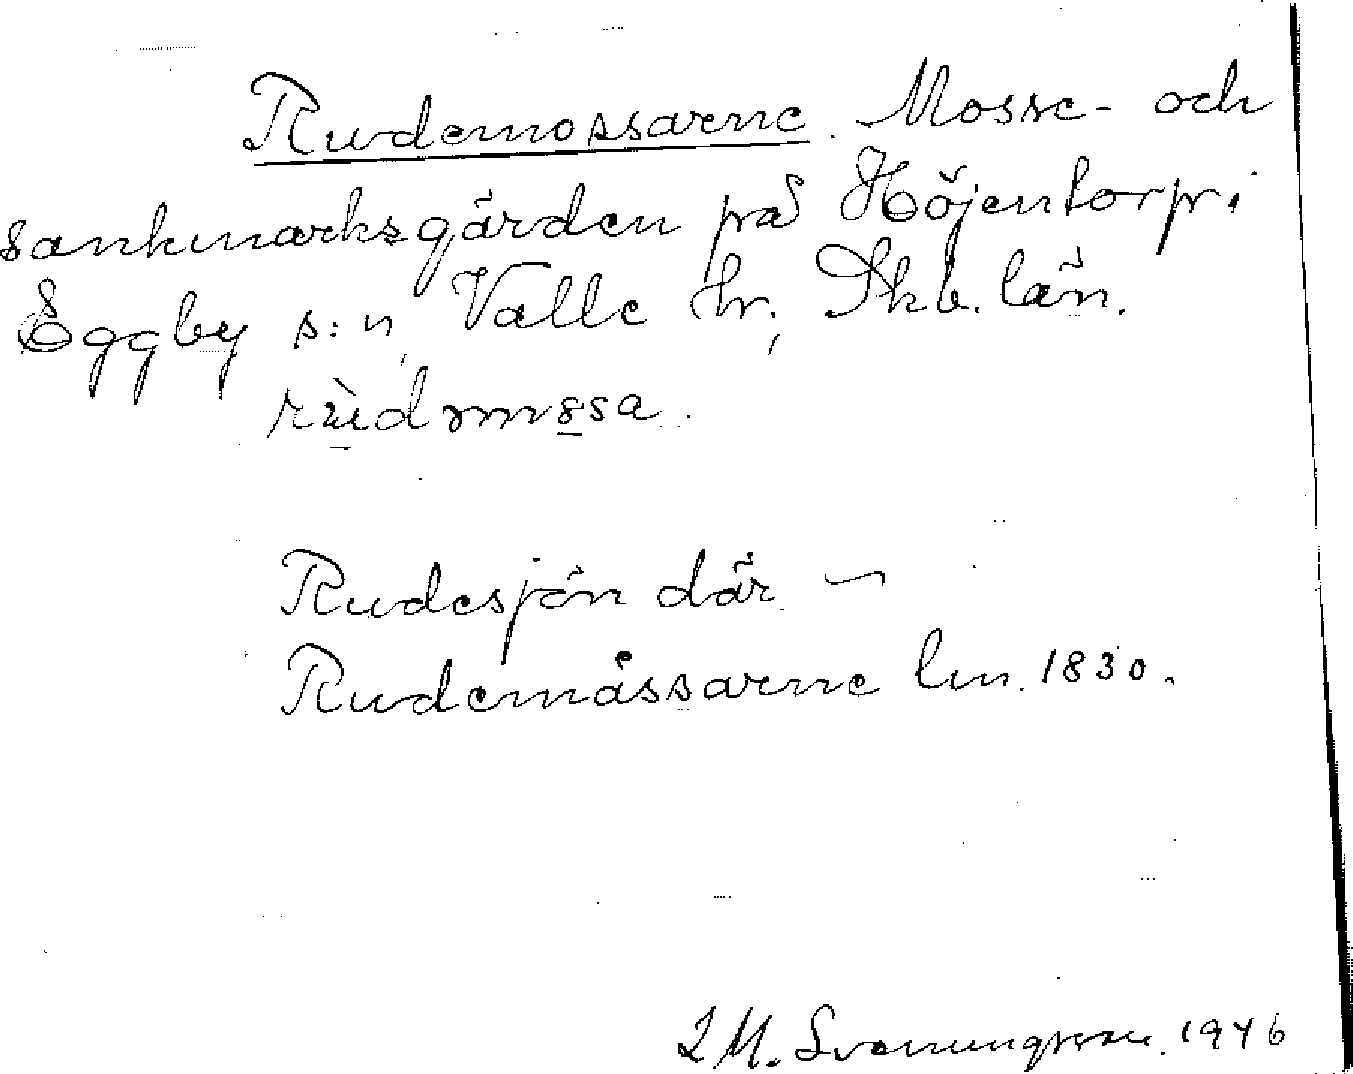 Rudemossarne. Mosse- och
sankmarksgärden på Höjentorp i
Eggby s:n, Valle hr, Skb. län.
Rudesjön där —
Rudemåssarne lm. 1830.
I M. Svennungsson. 1946